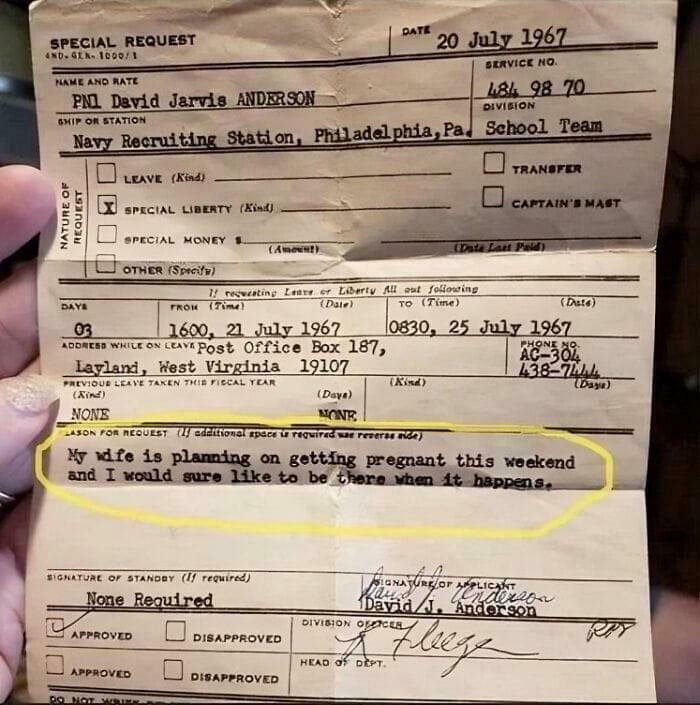 SPECIAL REQUEST
DATE 20 July 1967
NAME AND RATE
SERVICE NO.
PN1 David Jarvis ANDERSON
484 98 70
SHIP OR STATION
DIVISION
Navy Recruiting Station, Philadelphia, Pa. School Team
NATURE OF REQUEST
LEAVE (Kind)
TRANSFER
X SPECIAL LIBERTY (Kind)
CAPTAIN'S MAST
SPECIAL MONEY $
(Amount) (Date Last Paid)
OTHER (Specify)
If requesting Leave or Liberty fill out following
DAYS FROM (Time) (Date) TO (Time) (Date)
03 1600, 21 July 1967 0830, 25 July 1967
ADDRESS WHILE ON LEAVE Post Office Box 187,
PHONE NO.
AC-304
Layland, West Virginia 19107
438-7444
PREVIOUS LEAVE TAKEN THIS FISCAL YEAR
(Kind) (Days) (Kind) (Days)
NONE NONE
REASON FOR REQUEST (If additional space is required use reverse side)
My wife is planning on getting pregnant this weekend
and I would sure like to be there when it happens.
SIGNATURE OF STANDBY (If required)
SIGNATURE OF APPLICANT
None Required
David J. Anderson
David J. Anderson
APPROVED DISAPPROVED
DIVISION OFFICER
APPROVED DISAPPROVED
HEAD OF DEPT.
DO NOT WRITE